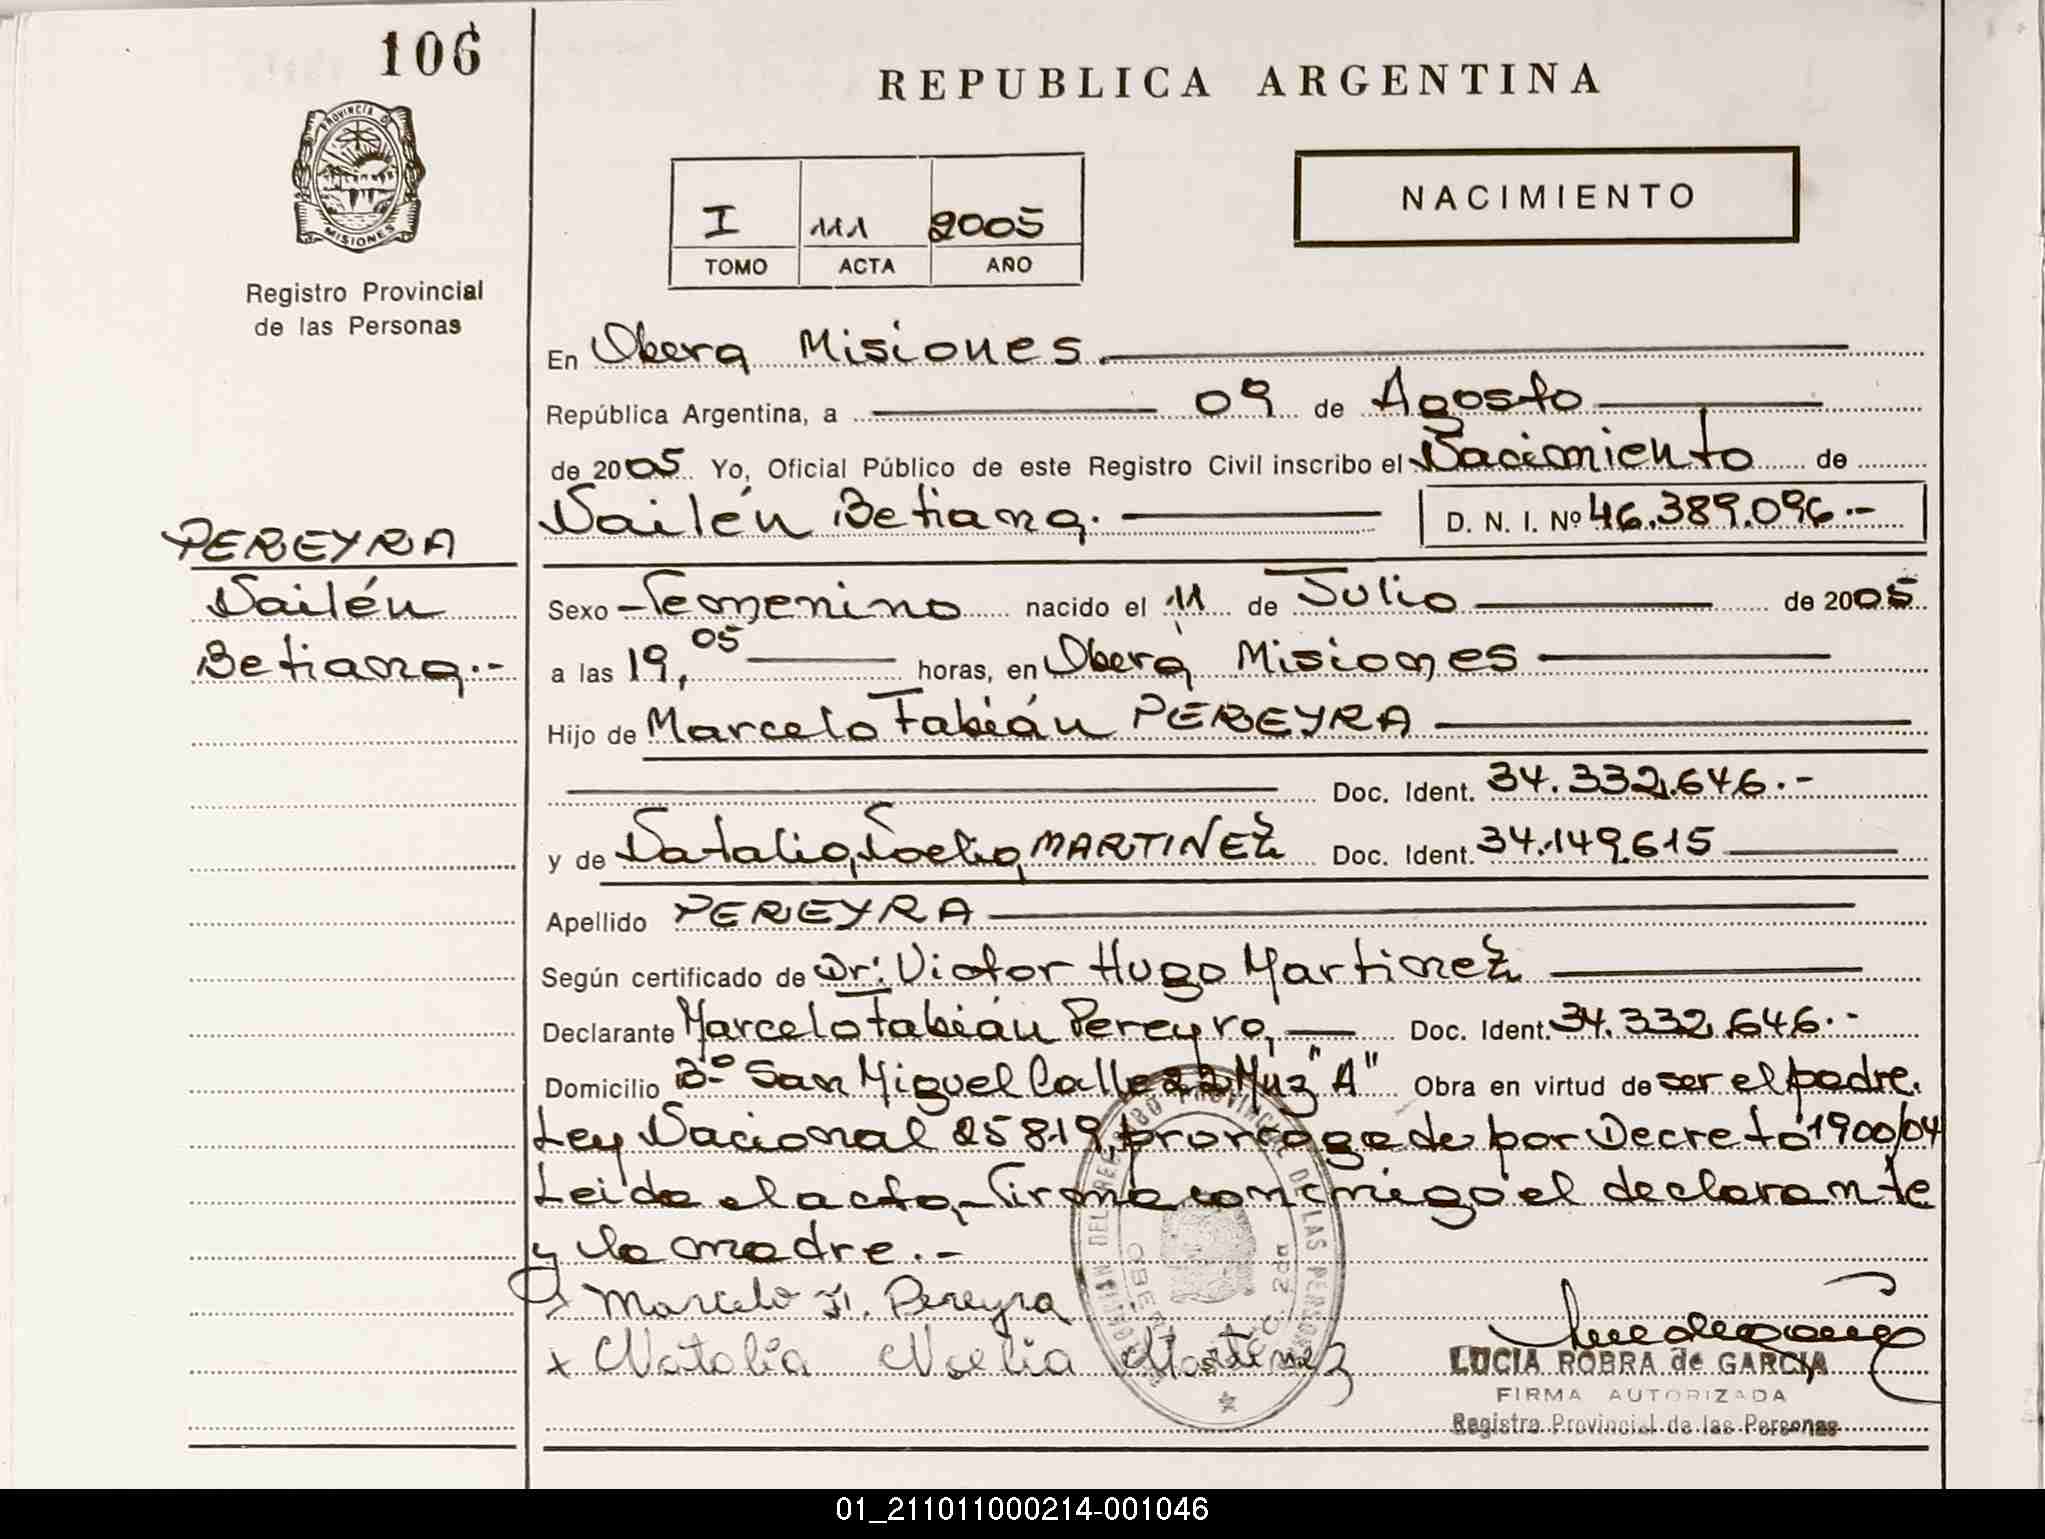 106
PROVINCIA DE
MISIONES
Registro Provincial
de las Personas
REPUBLICA ARGENTINA
I 111 2005
TOMO ACTA AÑO
NACIMIENTO
En Obera Misiones.
República Argentina, a 09 de Agosto
de 2005 Yo, Oficial Público de este Registro Civil inscribo el Nacimiento de
Nailén Betiana. D. N. I. Nº 46.389.096.-
PEREYRA
Nailén
Betiana.-
Sexo Femenino nacido el 11 de Julio de 2005
a las 19,05 horas, en Oberá Misiones
Hijo de Marcelo Fabián PEREYRA
Doc. Ident. 34.332.646.-
y de Natalia Noelia MARTINEZ Doc. Ident. 34.149.615
Apellido PEREYRA
Según certificado de Dr: Victor Hugo Martinez
Declarante Marcelo Fabián Pereyra, Doc. Ident. 34.332.646.-
Domicilio Bº San Miguel Calle 22 Mnz "A" Obra en virtud de ser el padre.
Ley Nacional 25819, prorrogada por Decreto 1900/04
Leida el acta, firma conmigo el declarante
y la madre.-
x Marcelo F. Pereyra
x Natalia Noelia Martinez
DEL REGISTRO PROVINCIAL DE LAS PERSONAS
OBERA
2da
LUCIA ROBRA de GARCIA
FIRMA AUTORIZADA
Registro Provincial de las Personas
01_211011000214-001046